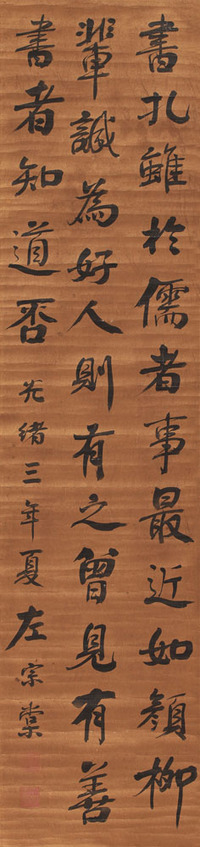 書札雖於儒者事最近如顏柳
輩誠為好人則有之曾見有善
書者知道否光緒三年夏左宗棠